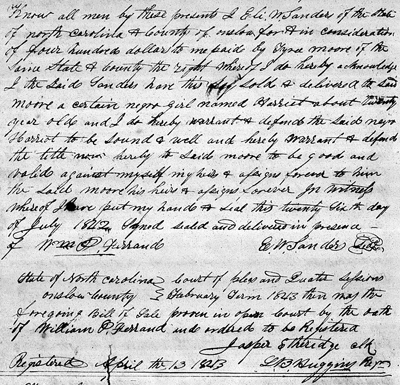 Know all men by these present I Eli W Sanders of the State
of north carolina & County of onslow for & in consideration
of four hundred dollar to me paid by Tyrae moore of the
Same State & County the right whereof I do hereby acknowledge
I the Said Sanders have this day sold & delivered the Said
Moore a certain negro girl named Harriet about twenty
year olds and I do hereby warrant & defends the Said negro
Harriet to be sound & well and hereby warrant & defends
the title now hereby to Said moore to be good and
valids against myself my heirs & asigns forever to him
the Said moore his heirs & asigns forever In witness
whereof I have put my hands & seal this twenty Sixth day
of July 1842 Signed sealed and delivered in presence
of Wm P. Ferrand E W Sander
State of North carolina Court of pleas and Quater Sessions
onslow County February Term 1843 then was the
foregoing Bill of Sale proven in open Court by the oath
of William P. Ferrand and ordered to be Registered
Jasper Etheridge clk
Registered April the 13 1843 Huggins Regr